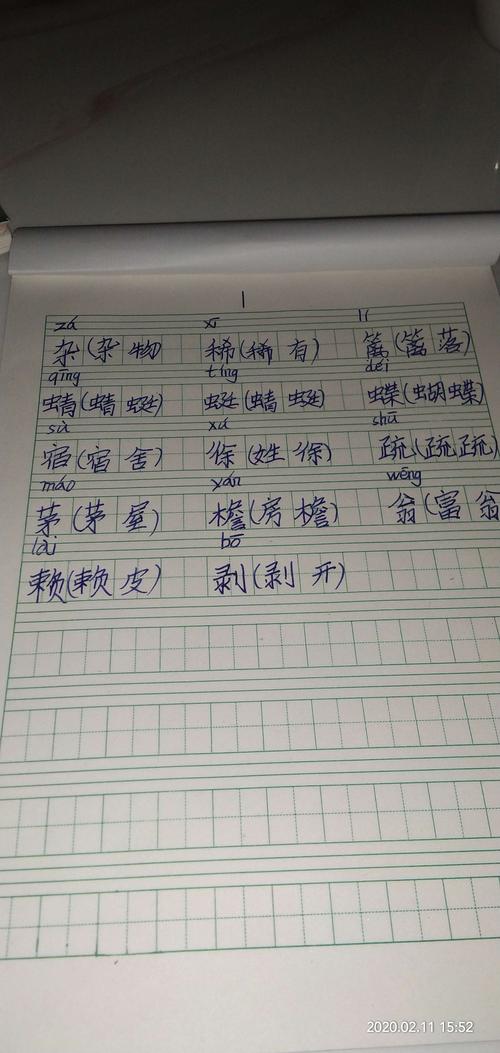 1
zá xī lí
杂(杂物) 稀(稀有) 篱(篱落)
qīng tíng déi
蜻(蜻蜓) 蜓(蜻蜓) 蝶(蝴蝶)
sù xú shū
宿(宿舍) 徐(姓徐) 疏(疏疏)
máo yán wēng
茅(茅屋) 檐(房檐) 翁(富翁
lài bō
赖(赖皮) 剥(剥开)
2020.02.11 15:52